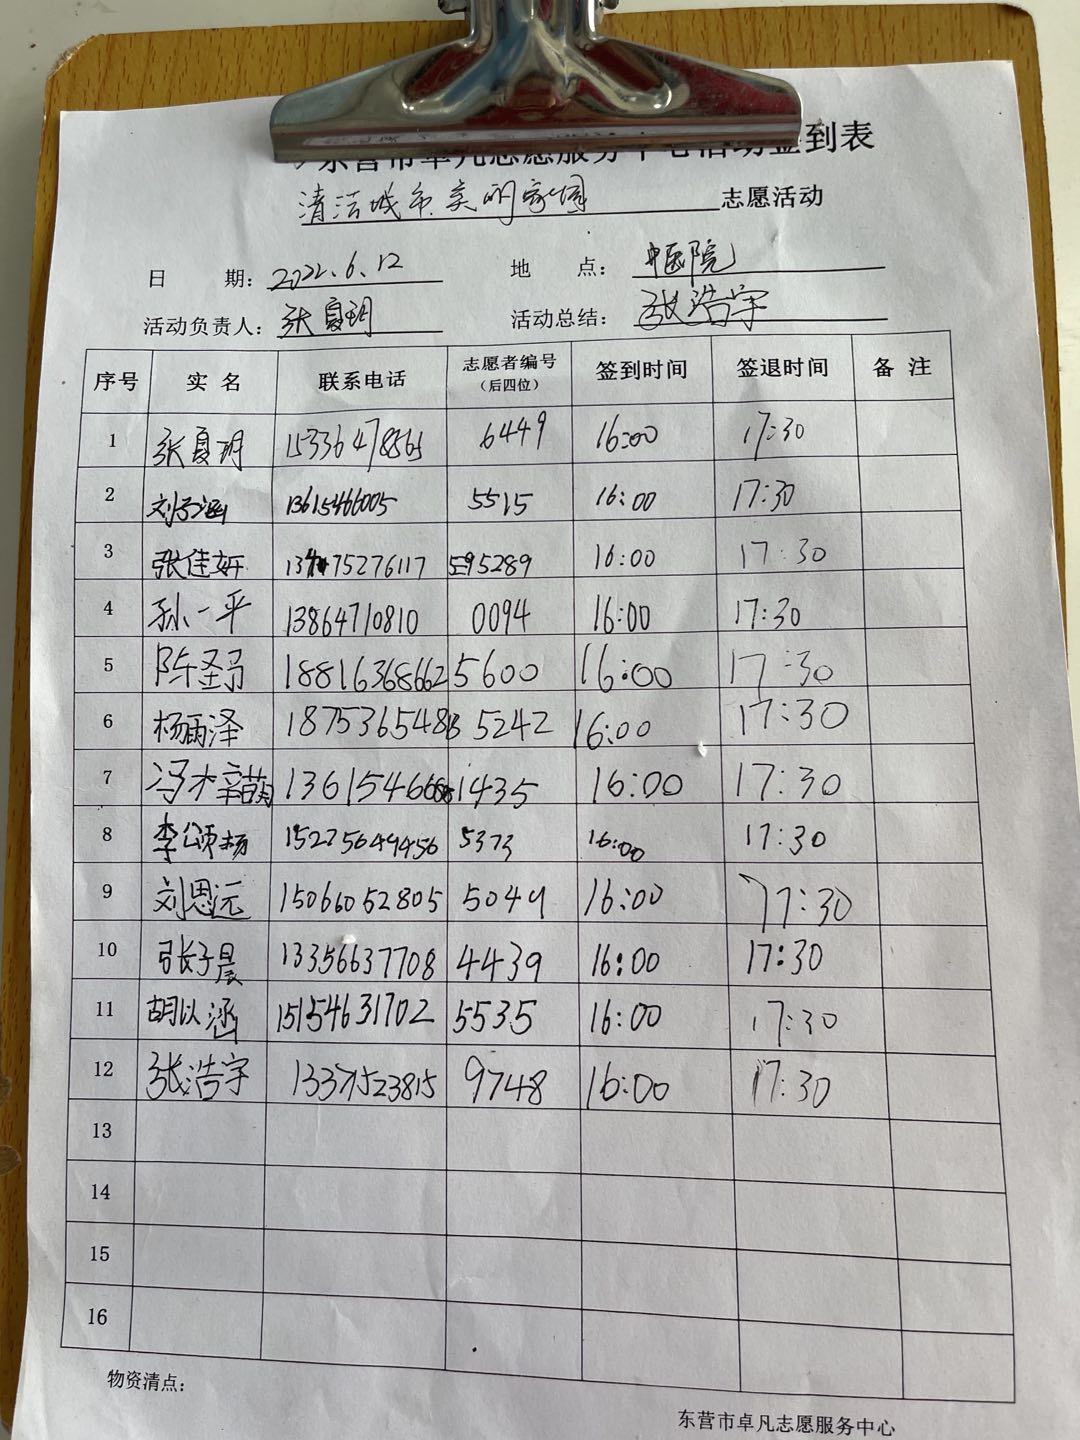 东营市卓凡志愿服务中心活动签到表
清洁城市 美丽家园 志愿活动
日 期: 2022.6.12 地 点: 中医院
活动负责人: 张夏玥 活动总结: 张浩宇
序号 实名 联系电话 志愿者编号(后四位) 签到时间 签退时间 备注
1 张夏玥 15336478565 6449 16:00 17:30
2 刘子涵 13615466005 5515 16:00 17:30
3 张佳妍 13475276117 595289 16:00 17:30
4 孙一平 13864710810 0094 16:00 17:30
5 陈圣予 18816368662 5600 16:00 17:30
6 杨雨泽 5242 16:00 17:30
7 冯梓萌 1435 16:00 17:30
8 李颂杨 15275649456 5373 16:00 17:30
9 刘思远 15066052805 5049 16:00 17:30
10 张子晨 13356637708 4439 16:00 17:30
11 胡以涵 15154631702 5535 16:00 17:30
12 张浩宇 13371523815 9748 16:00 17:30
13
14
15
16
物资清点:
东营市卓凡志愿服务中心